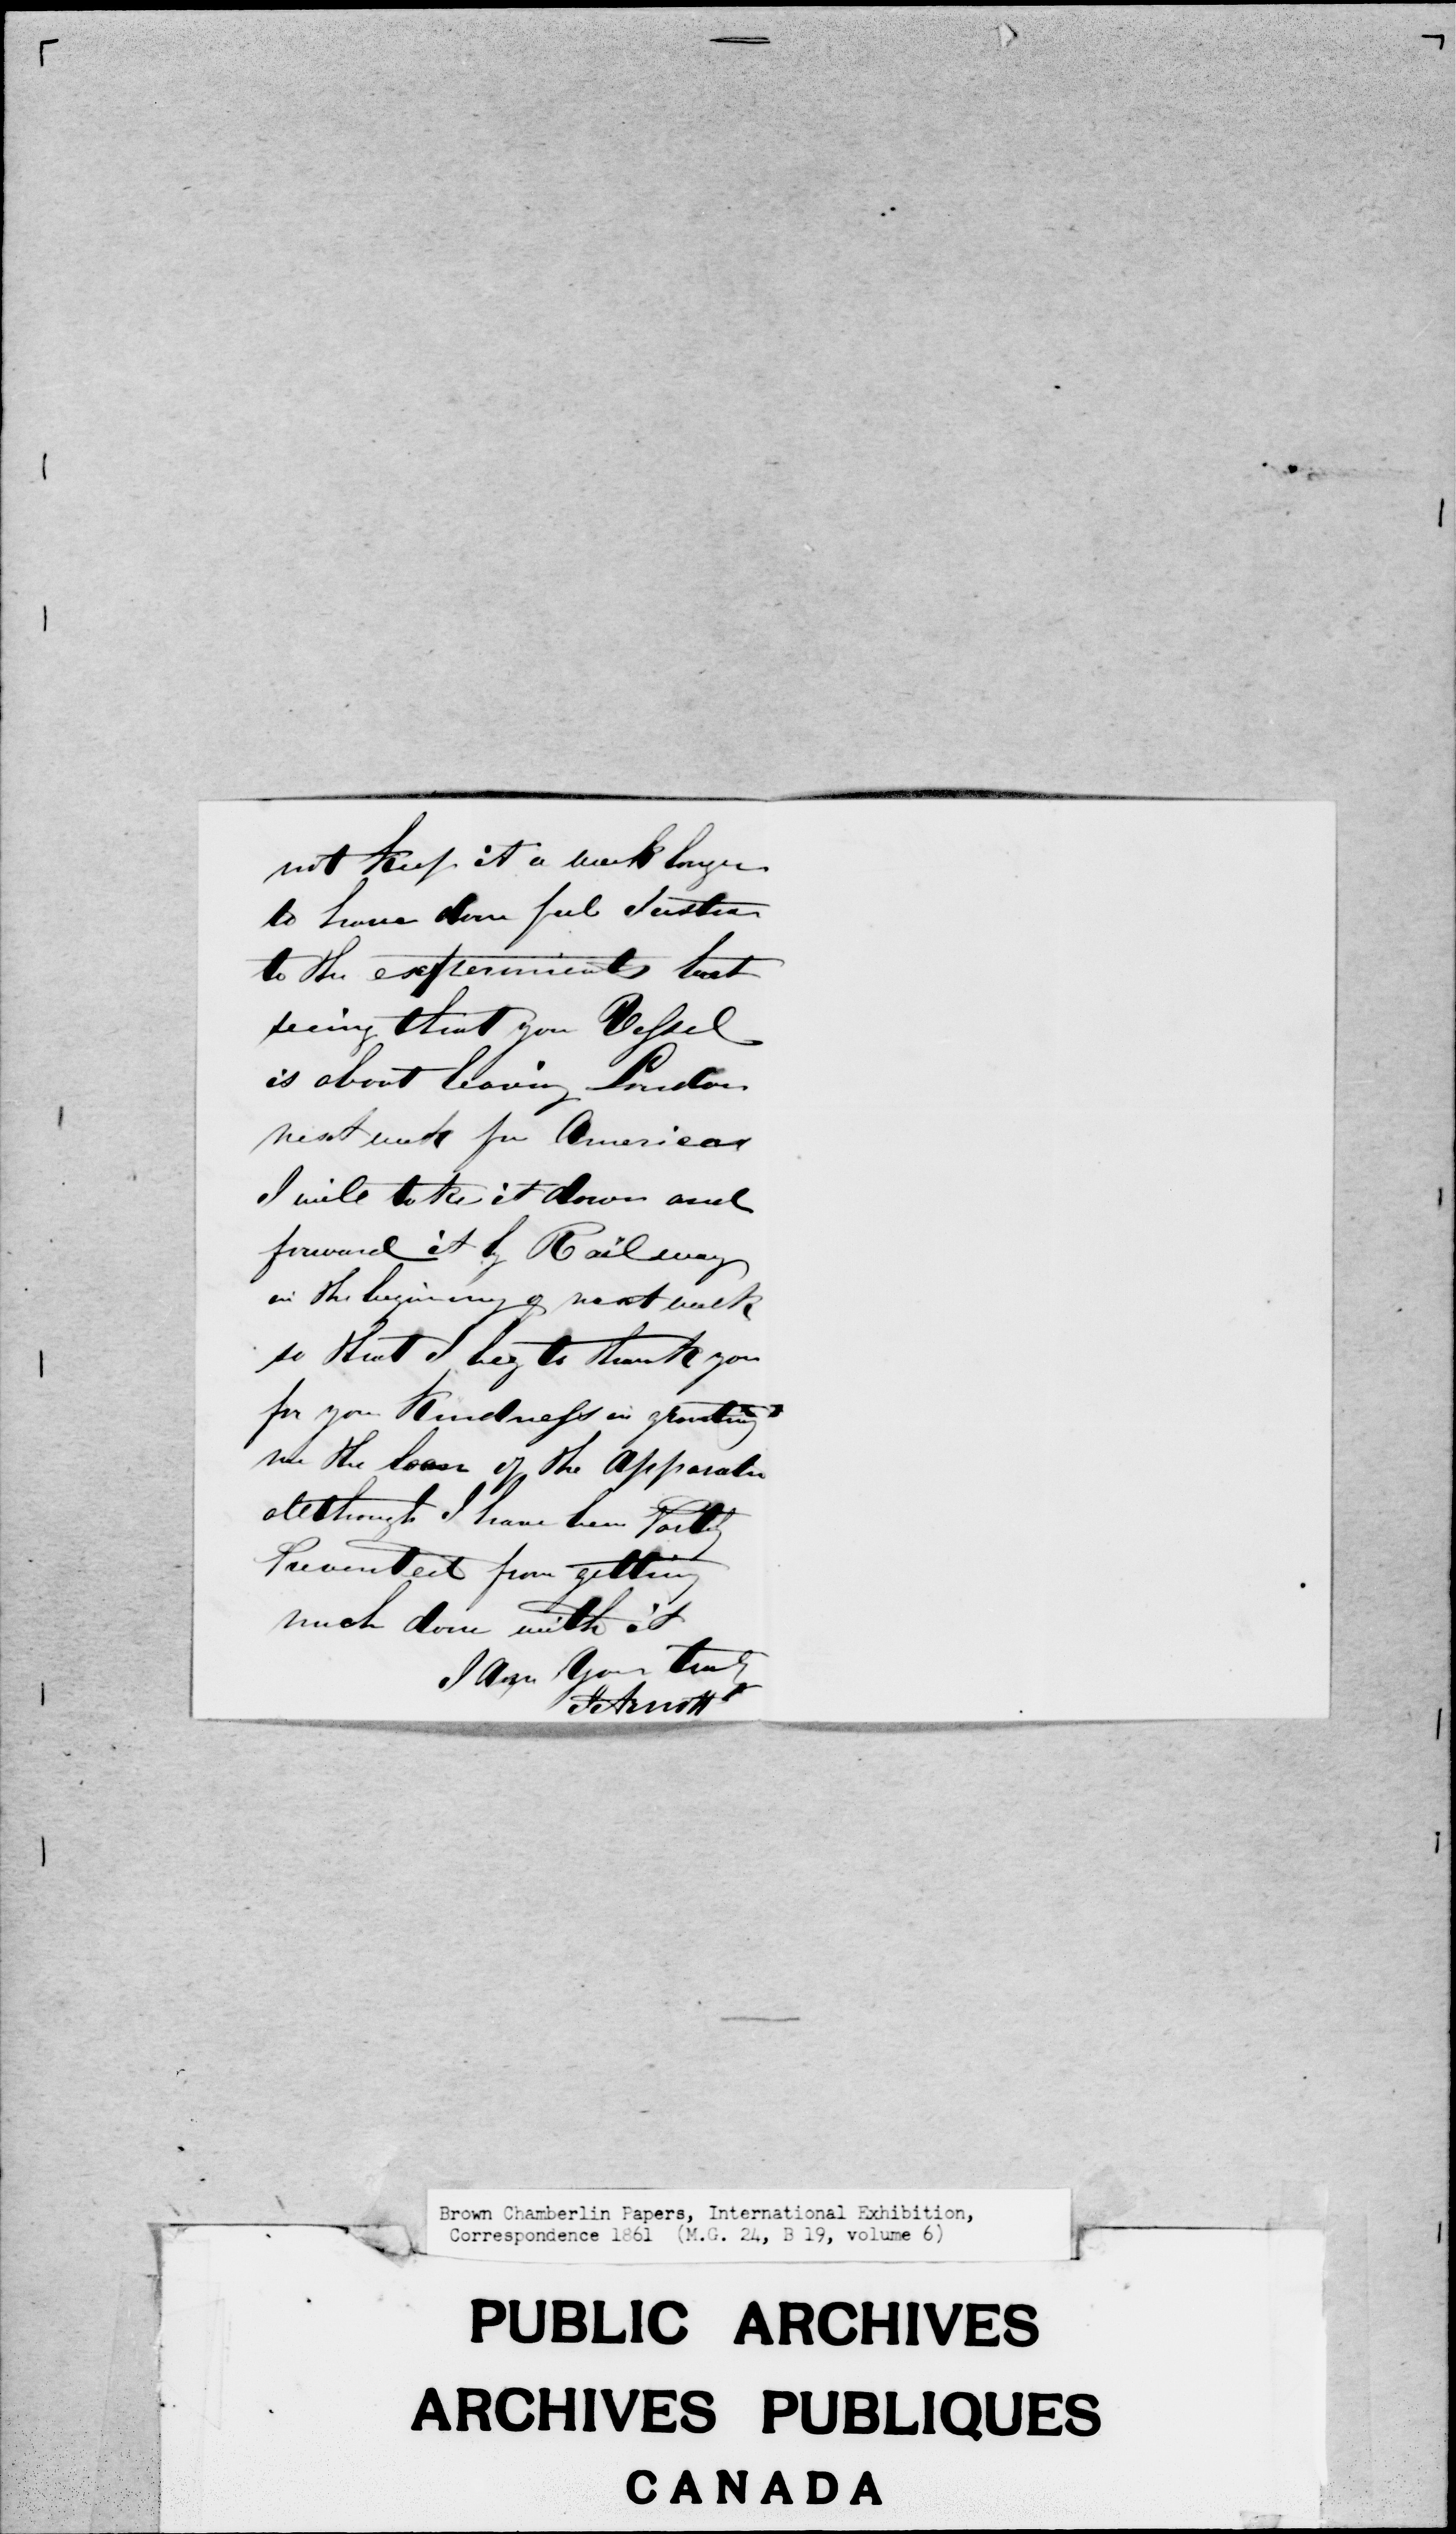 not keep it a week longer
to have done full Justice
to the experiments but
seeing that your Vessel
is about leaving London
next week for America
I will take it down and
forward it by Railway
in the beginning of next week
so that I beg to thank you
for your kindness in granting
me the loan of the Apparatus
although I have been Partly
Prevented from getting
much done with it
I am Yours truly
Arnott
Brown Chamberlin Papers, International Exhibition,
Correspondence 1861 (M.G. 24, B 19, volume 6)
PUBLIC ARCHIVES
ARCHIVES PUBLIQUES
CANADA